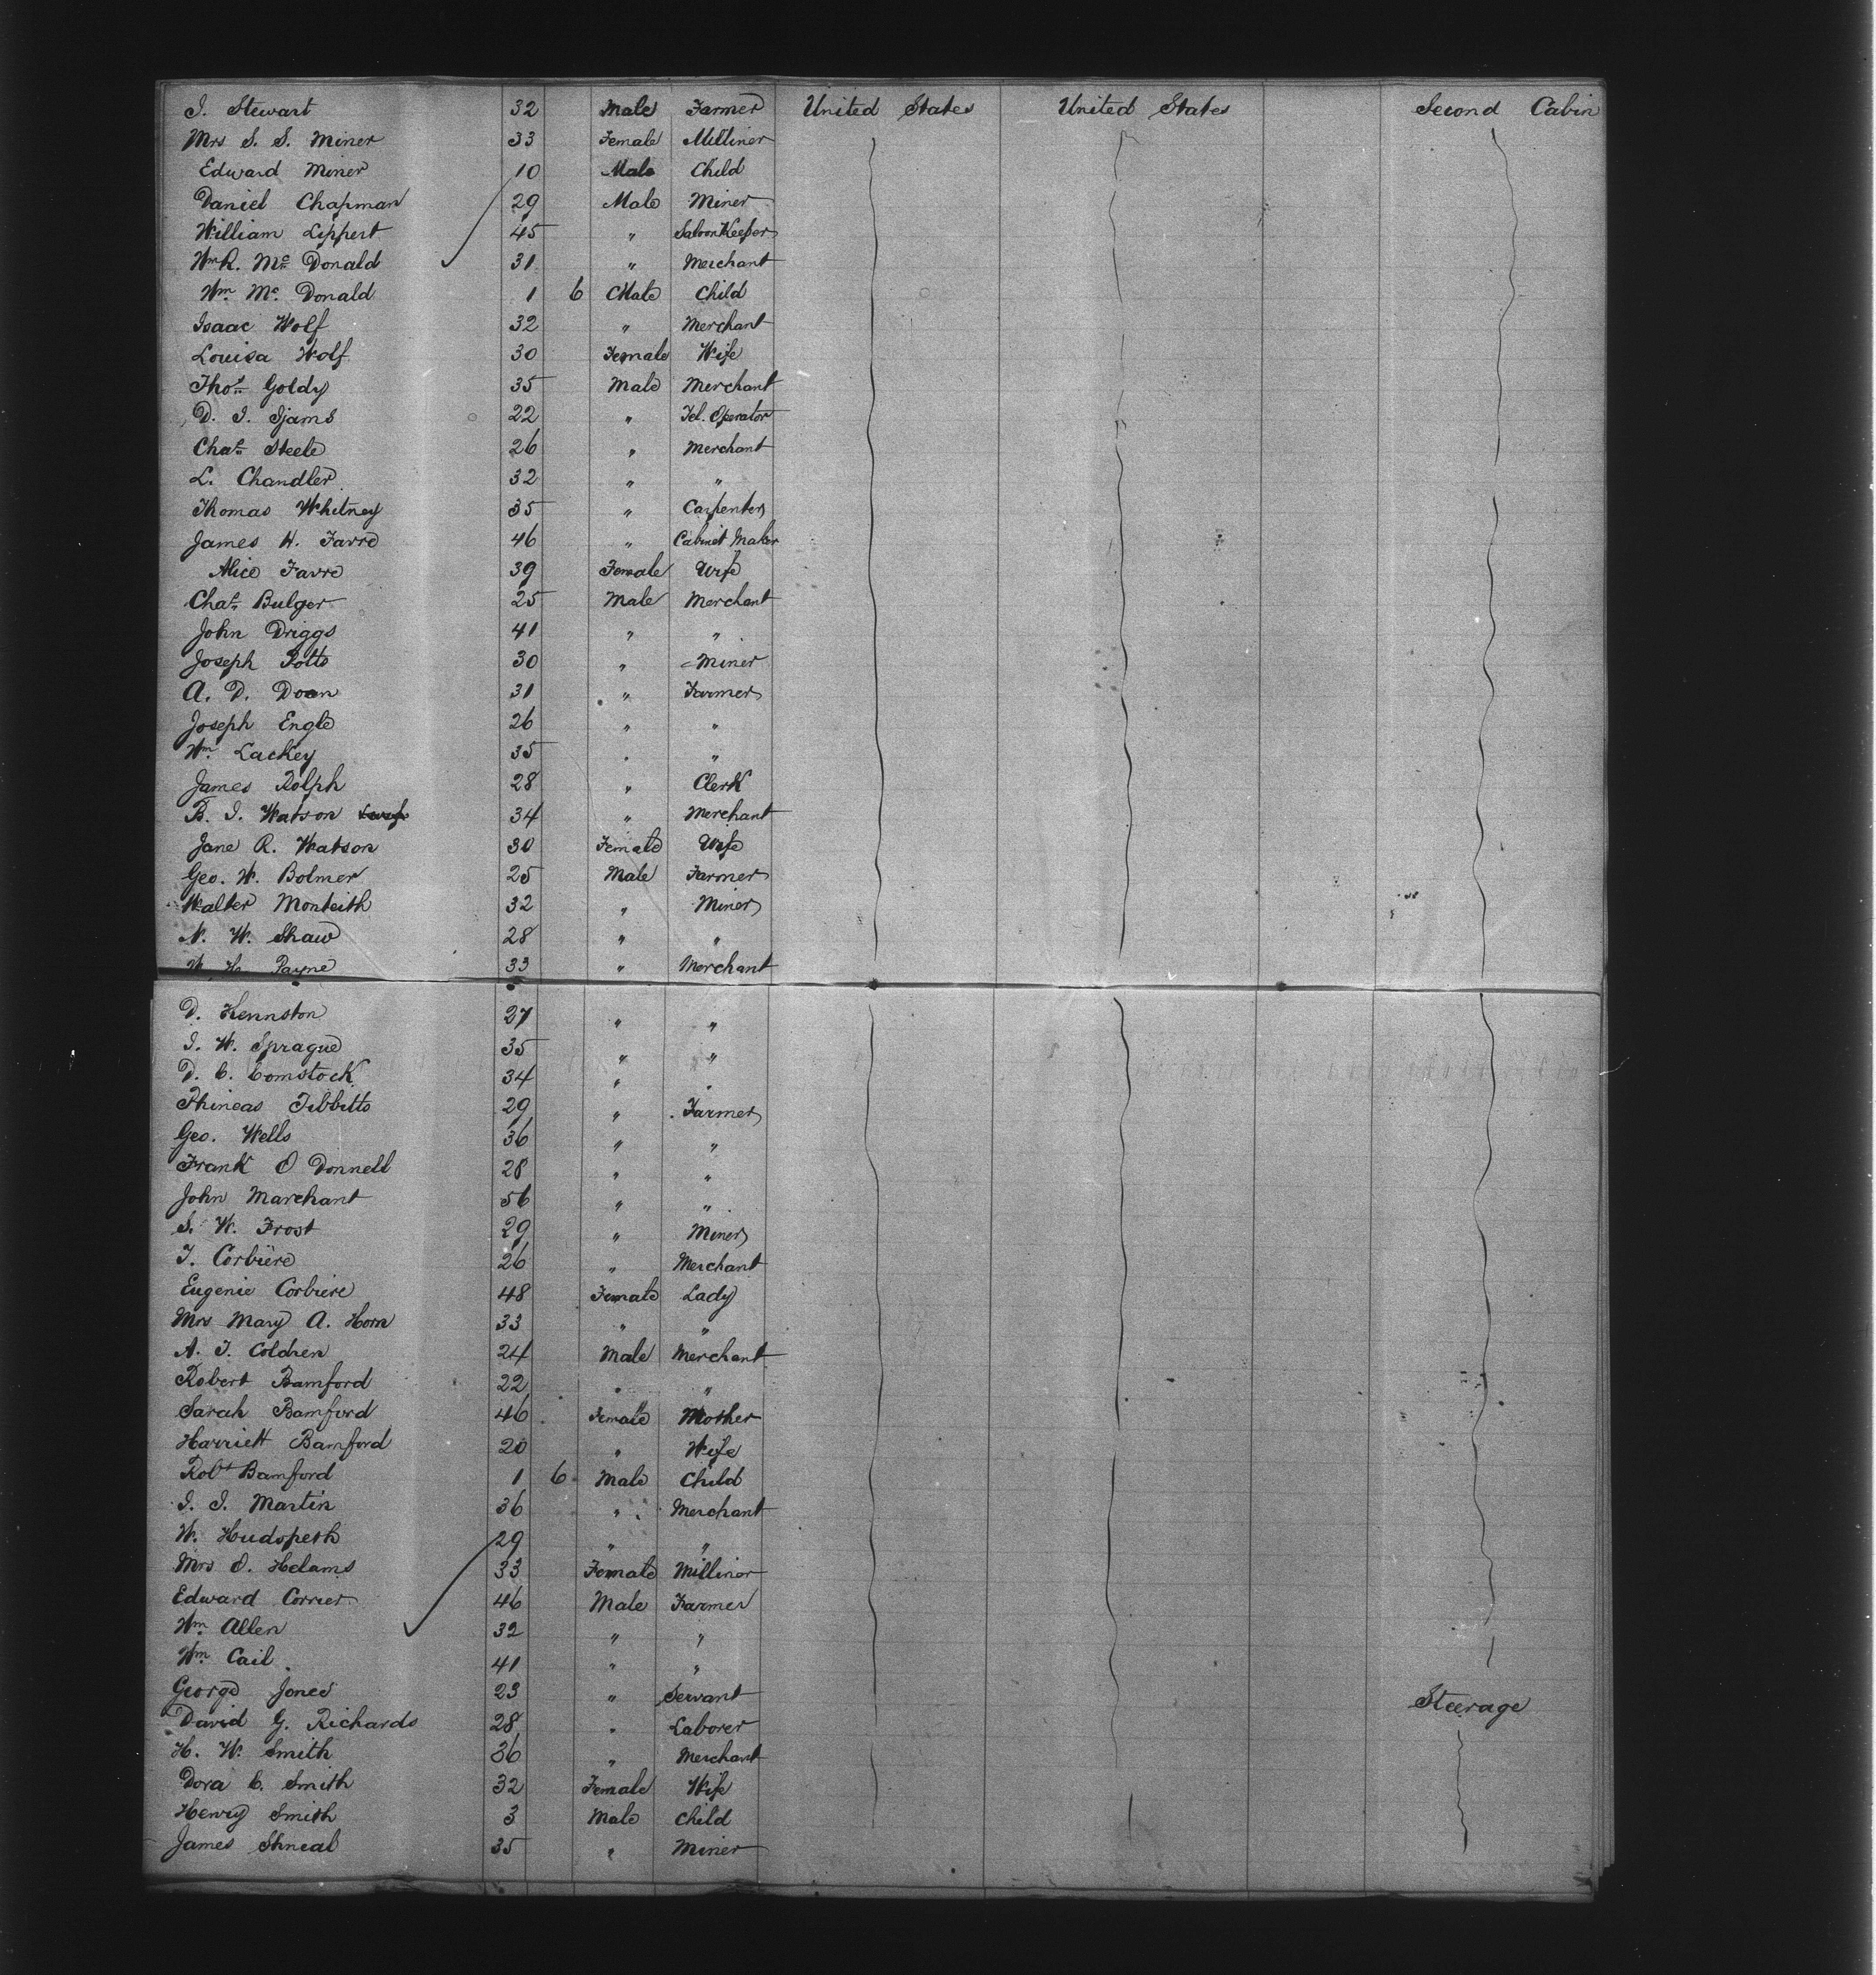 J. Stewart 32 Male Farmer United States United States Second Cabin
Mrs S. S. Miner 33 Female Milliner
Edward Miner 10 Male Child
Daniel Chapman 29 Male Miner
William Lippert 45 " Saloon Keeper
Wm R. Mc Donald 31 " Merchant
Wm Mc Donald 1 6 Male Child
Isaac Wolf 32 " Merchant
Louisa Wolf 30 Female Wife
Thos Goldy 35 Male Merchant
D. J. Ijams 22 " Tel. Operator
Chas Steele 26 " Merchant
L. Chandler 32 " "
Thomas Whitney 35 " Carpenter
James W. Favre 46 " Cabinet Maker
Alice Favre 39 Female Wife
Chas Bulger 25 Male Merchant
John Driggs 41 " "
Joseph Potts 30 " Miner
A. D. Doan 31 " Farmer
Joseph Engle 26 " "
Wm Lackey 35 " "
James Rolph 28 " Clerk
B. J. Watson 34 " Merchant
Jane R. Watson 30 Female Wife
Geo. W. Bolmer 25 Male Farmer
Walter Monteith 32 " Miner
N. W. Shaw 28 " "
W. H. Payne 33 " Merchant
D. Kennston 27 " "
J. W. Sprague 35 " "
D. C. Comstock 34 " "
Phineas Tibbitts 29 " Farmer
Geo. Wells 36 " "
Frank O Donnell 28 " "
John Marchant 56 " "
S. W. Frost 29 " Miner
T. Corbiere 26 " Merchant
Eugenie Corbiere 48 Female Lady
Mrs Mary A. Horn 33 " "
A. J. Coldren 24 Male Merchant
Robert Bamford 22 " "
Sarah Bamford 46 Female Mother
Harriett Bamford 20 " Wife
Robt Bamford 1 6 Male Child
J. J. Martin 36 " Merchant
W. Hudspeth 29 " "
Mrs O. Helams 33 Female Milliner
Edward Corrier 46 Male Farmer
Wm Allen 32 " "
Wm Cail 41 " "
George Jones 23 " Servant Steerage
David G. Richards 28 " Laborer
H. W. Smith 36 " Merchant
Dora C. Smith 32 Female Wife
Henry Smith 3 Male Child
James Shneal 35 " Miner